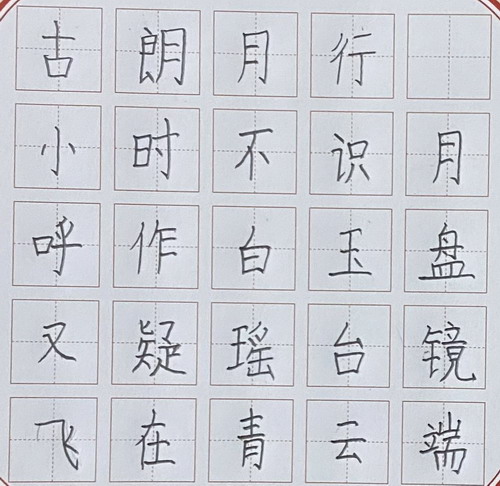 古朗月行
小时不识月
呼作白玉盘
又疑瑶台镜
飞在青云端